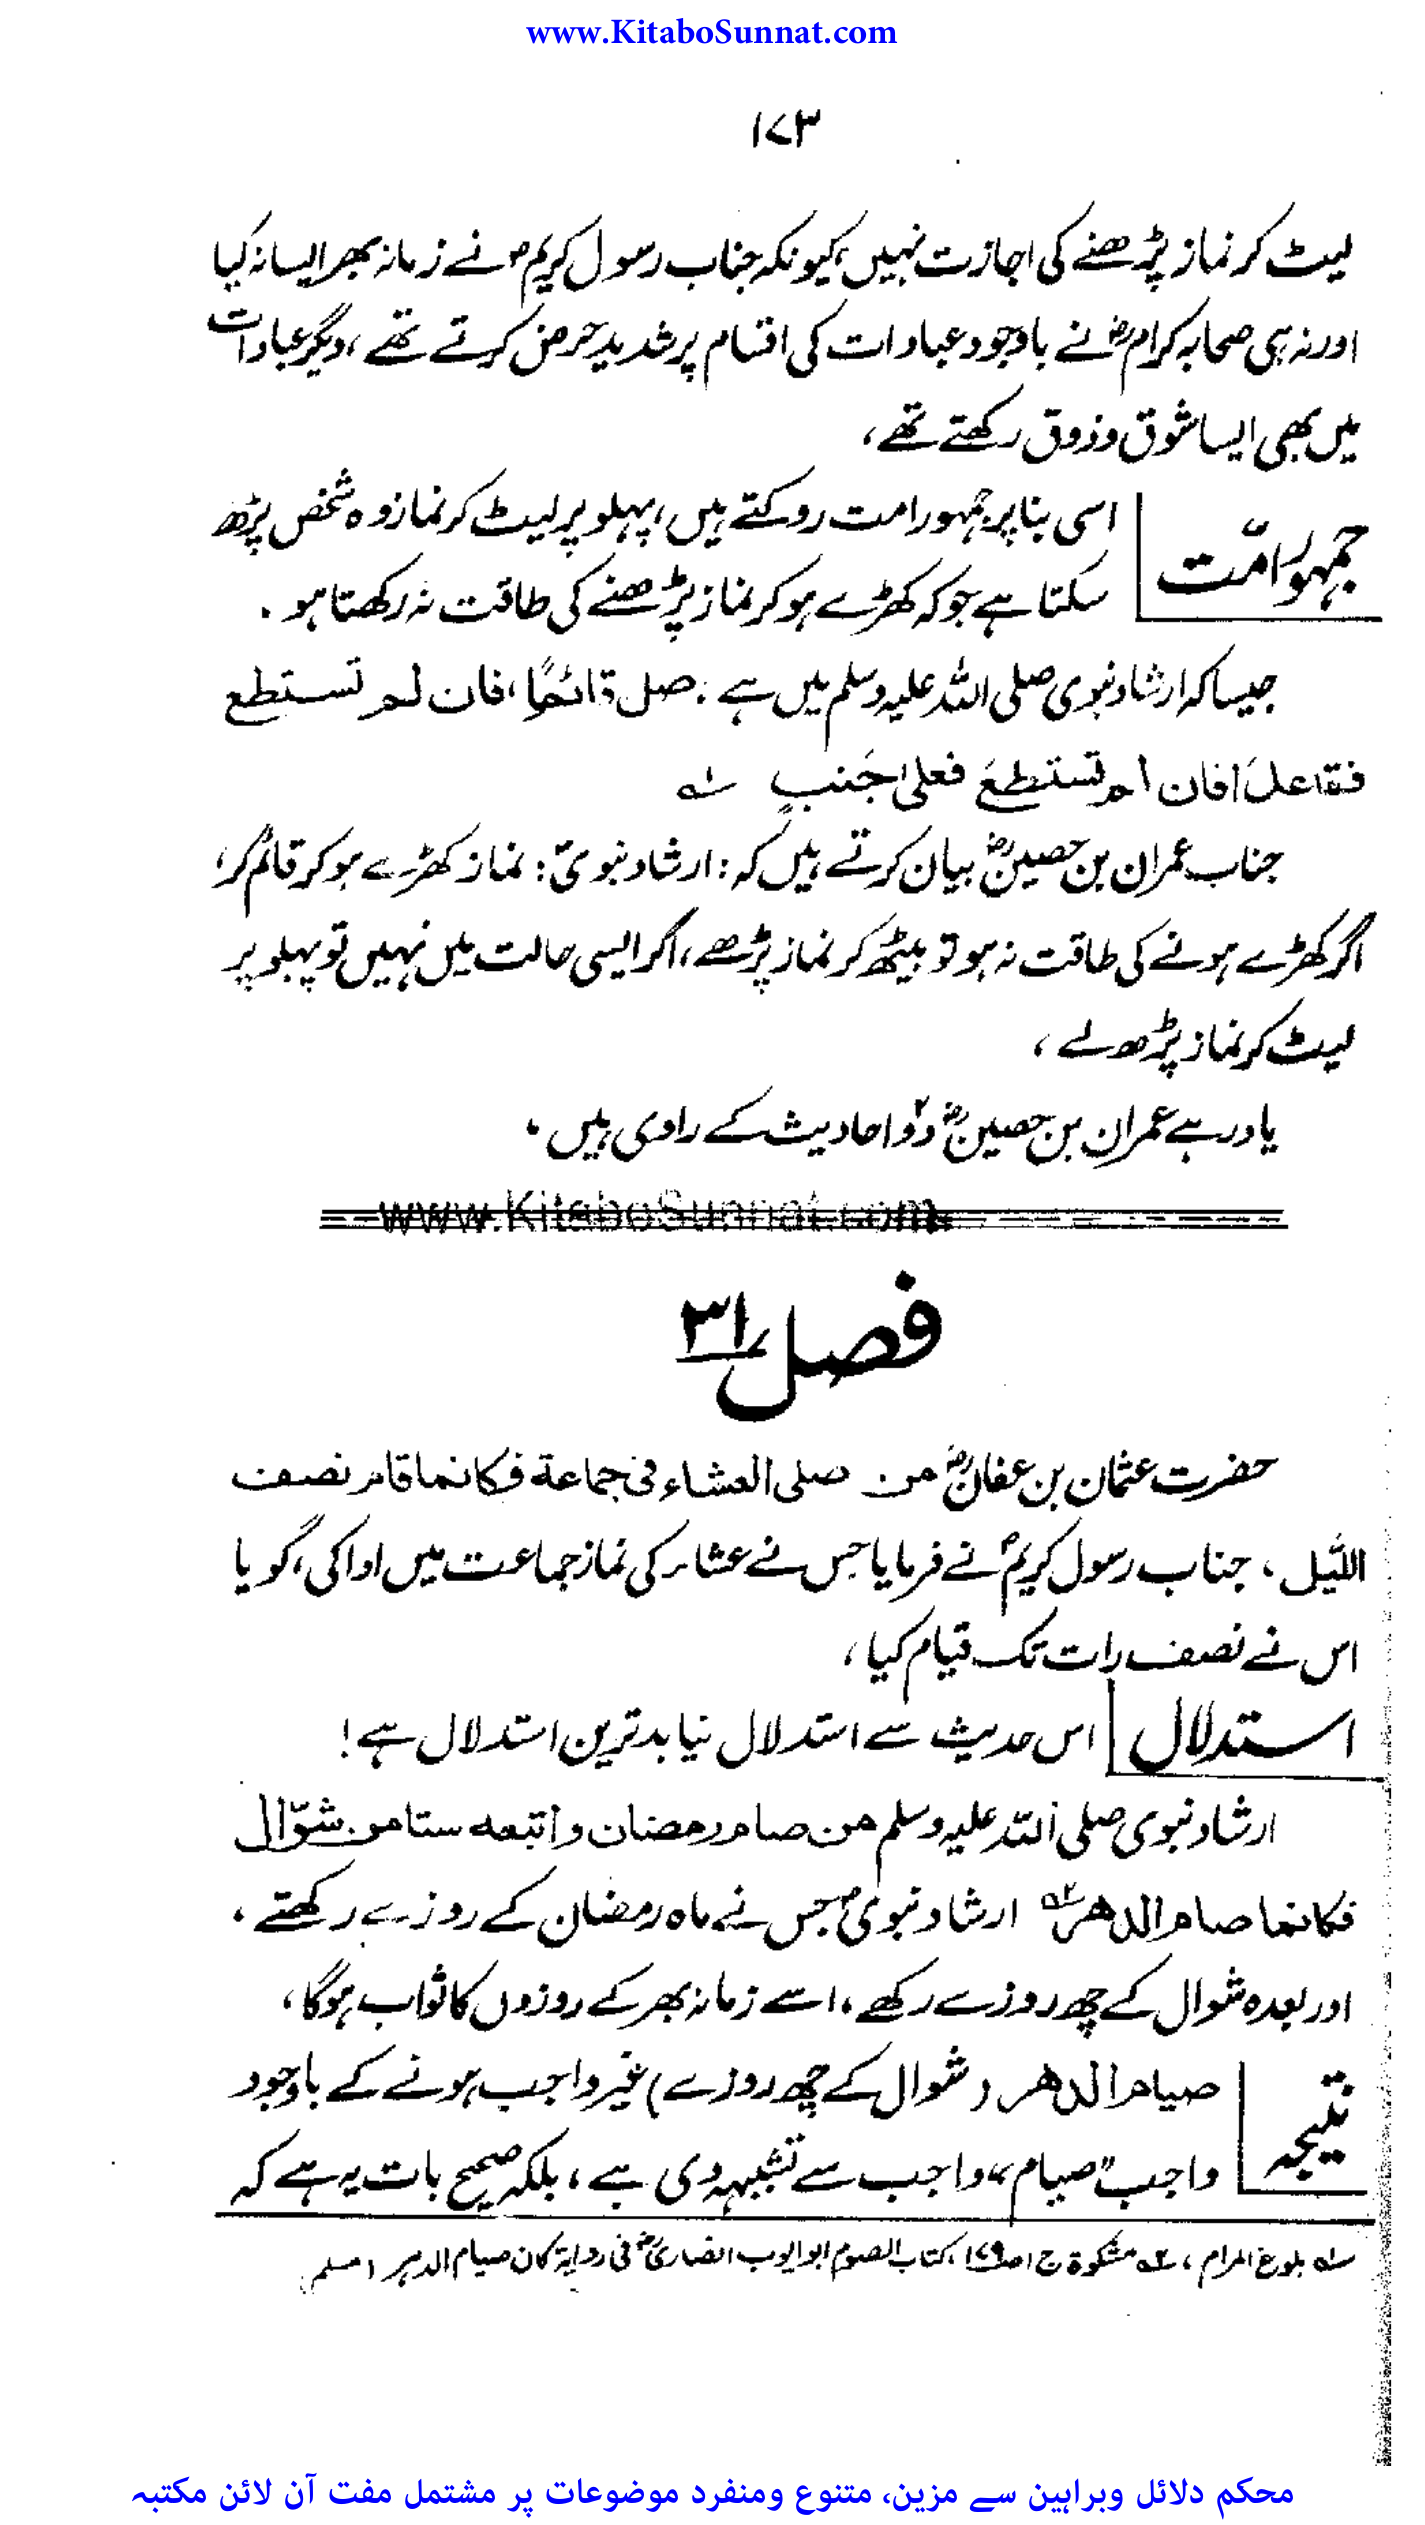 www.KitaboSunnat.com
۱۷۳
لیٹ کر نماز پڑھنے کی اجازت نہیں، کیونکہ جناب رسول کریمؐ نے زمانہ بھر ایسا نہ کیا
اور نہ ہی صحابہ کرامؓ نے باوجود عبادات کی اقسام پر شدید حرص کرتے تھے، دیگر عبادات
میں بھی ایسا شوق و ذوق رکھتے تھے،
جمہور امّت
اسی بنا پر جمہور امت روکتے ہیں، پہلو پر لیٹ کر نماز وہ شخص پڑھ
سکتا ہے جو کہ کھڑے ہو کر نماز پڑھنے کی طاقت نہ رکھتا ہو ۔
جیسا کہ ارشاد نبوی صلی اللہ علیہ وسلم میں ہے . صل قائمًا ، فان لم تستطع
فقاعداً فان لم تستطع فعلیٰ جَنبٍ ۱ہ
جناب عمران بن حصینؓ بیان کرتے ہیں کہ : ارشاد نبویؐ : نماز کھڑے ہو کر قائم کر،
اگر کھڑے ہونے کی طاقت نہ ہو تو بیٹھ کر نماز پڑھے، اگر ایسی حالت میں نہیں تو پہلو پر
لیٹ کر نماز پڑھ لے ،
یاد رہے عمران بن حصینؓ دو۲ احادیث کے راوی ہیں ۔
www.KitaboSunnat.com
فصل ۳۱
حضرت عثمان بن عفانؓ من صلی العشاء فی جماعة فکانما قام نصف
اللّیل ، جناب رسول کریمؐ نے فرمایا جس نے عشاء کی نماز جماعت میں ادا کی، گویا
اس نے نصف رات تک قیام کیا ،
استدلال
اس حدیث سے استدلال نیا بدترین استدلال ہے !
ارشاد نبوی صلی اللہ علیہ وسلم من صام رمضان و اتبعه ستا من شوّال
فکانما صام الدهر ۲ہ ارشاد نبویؐ جس نے ماہ رمضان کے روزے رکھتے ،
اور بعدہ شوال کے چھ روزے رکھے ، اسے زمانہ بھر کے روزوں کا ثواب ہوگا،
نتیجہ
صیام الدهر (شوال کے چھ روزے) غیر واجب ہونے کے باوجود
واجب "صیام" واجب سے تشبیہہ دی ہے ، بلکہ صحیح بات یہ ہے کہ
۱ہ بلوغ المرام ، ۲ہ مشکوۃ ج ۱ ص۱۷۹، کتاب الصوم ابو ایوب انصاریؓ فی روایۃ کان صیام الدہر (مسلم)
محکم دلائل وبراہین سے مزین، متنوع ومنفرد موضوعات پر مشتمل مفت آن لائن مکتبہ